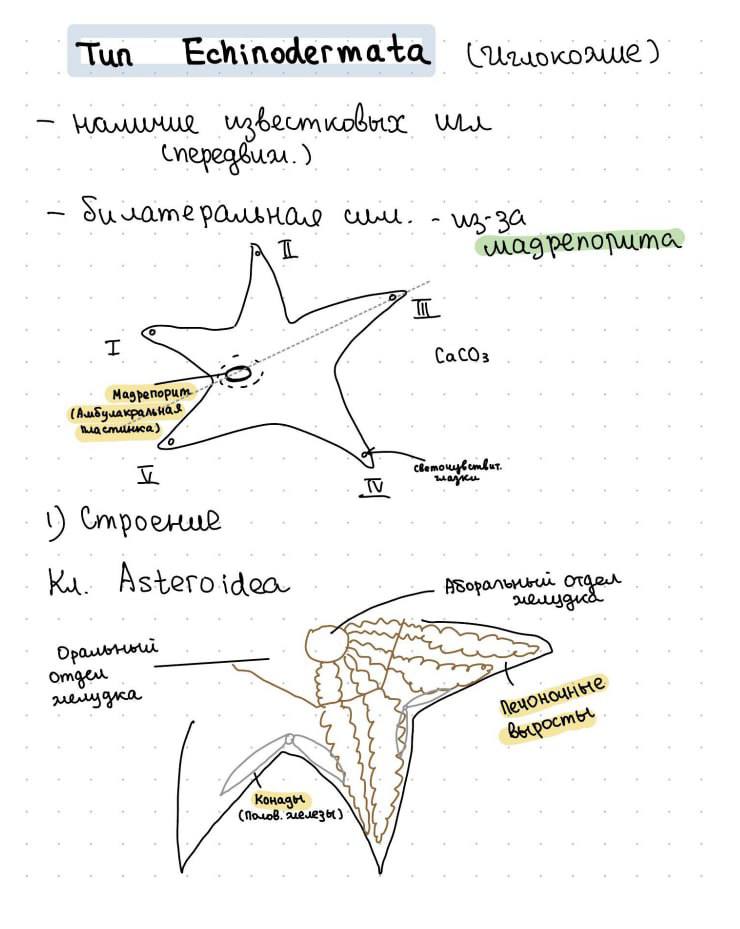 Тип Echinodermata (Иглокожие)
- наличие известковых игл
(передвиж.)
- билатеральная сим. - из-за
мадрепорита
II
III
I
CaCO3
Мадрепорит
(Амбулакральная
пластинка)
V
IV
светочувствит.
глазки
1) Строение
Кл. Asteroidea
Аборальный отдел
желудка
Оральный
отдел
желудка
Печоночные
выросты
Конады
(Полов. железы)